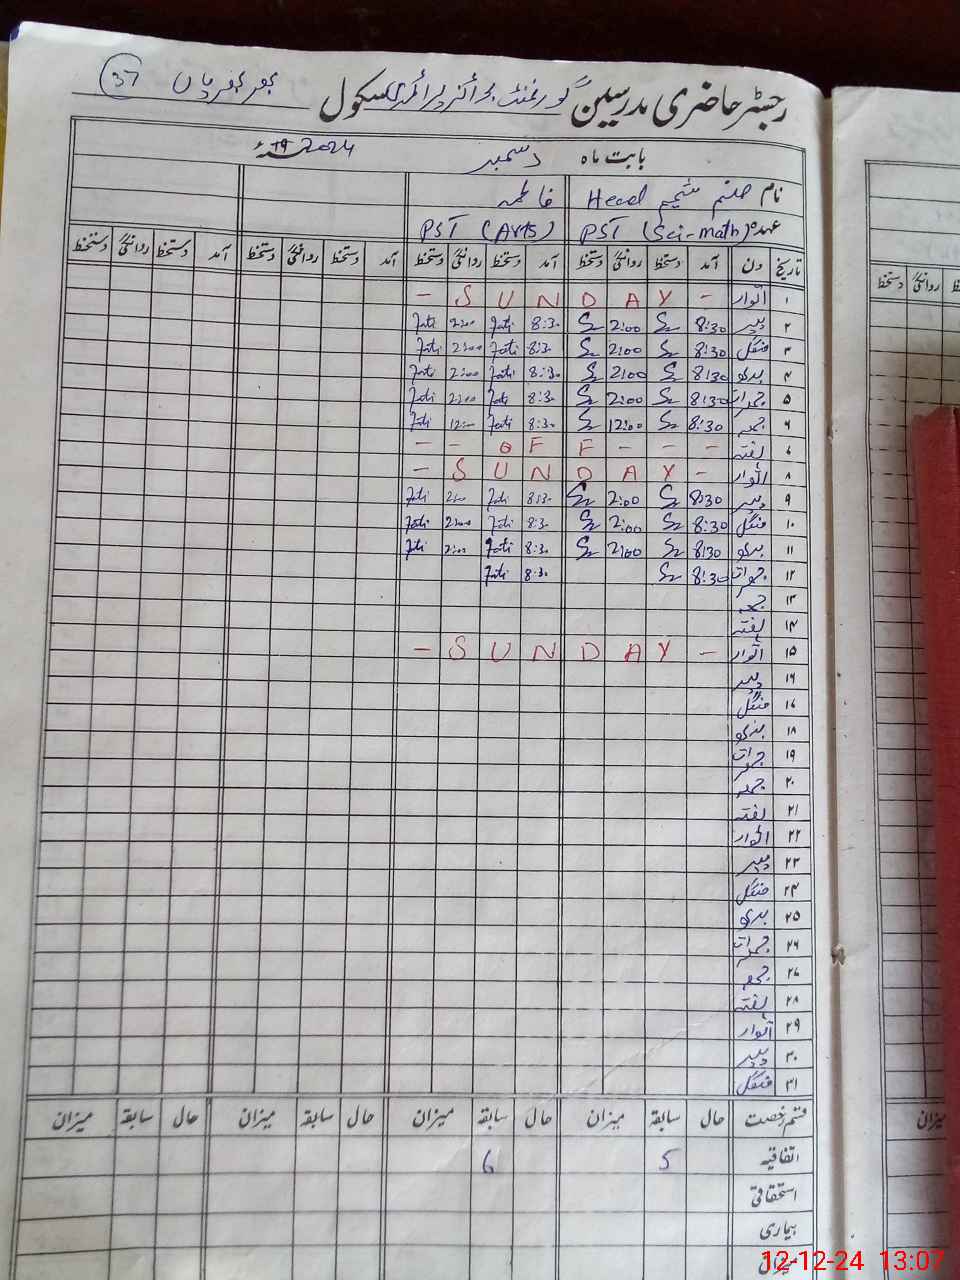 37
رجسٹر حاضری مدرسین گورنمنٹ پرائمری سکول
بابت ماہ دسمبر 2024 19ء
نام صنم شمیم Head فاطمہ
عہدہ PST (Sci-math) PST (Arts)
تاریخ دن آمد دستخط روانگی دستخط آمد دستخط روانگی دستخط آمد دستخط روانگی دستخط آمد دستخط روانگی دستخط
۱ اتوار - S U N D A Y -
۲ پیر 8:30 2:00 8:30 Fati 2:00 Fati
۳ منگل 8:30 2:00 8:30 Fati 2:00 Fati
۴ بدھ 8:30 2:00 8:30 Fati 2:00 Fati
۵ جمعرات 8:30 2:00 8:30 Fati 2:00 Fati
۶ جمعہ 8:30 12:00 8:30 Fati 12:00 Fati
۷ ہفتہ - - O F F - - -
۸ اتوار - S U N D A Y -
۹ پیر 8:30 2:00 8:30 Fati 2:00 Fati
۱۰ منگل 8:30 2:00 8:30 Fati 2:00 Fati
۱۱ بدھ 8:30 2:00 8:30 Fati 2:00 Fati
۱۲ جمعرات 8:30 8:30 Fati
۱۳ جمعہ
۱۴ ہفتہ
۱۵ اتوار - S U N D A Y -
۱۶ پیر
۱۷ منگل
۱۸ بدھ
۱۹ جمعرات
۲۰ جمعہ
۲۱ ہفتہ
۲۲ اتوار
۲۳ پیر
۲۴ منگل
۲۵ بدھ
۲۶ جمعرات
۲۷ جمعہ
۲۸ ہفتہ
۲۹ اتوار
۳۰ پیر
۳۱ منگل
قسم رخصت حال سابقہ میزان حال سابقہ میزان حال سابقہ میزان حال سابقہ میزان
اتفاقیہ 5 6
استحقاقی
بیماری
میزان
روانگی دستخط
میزان
12-12-24 13:07